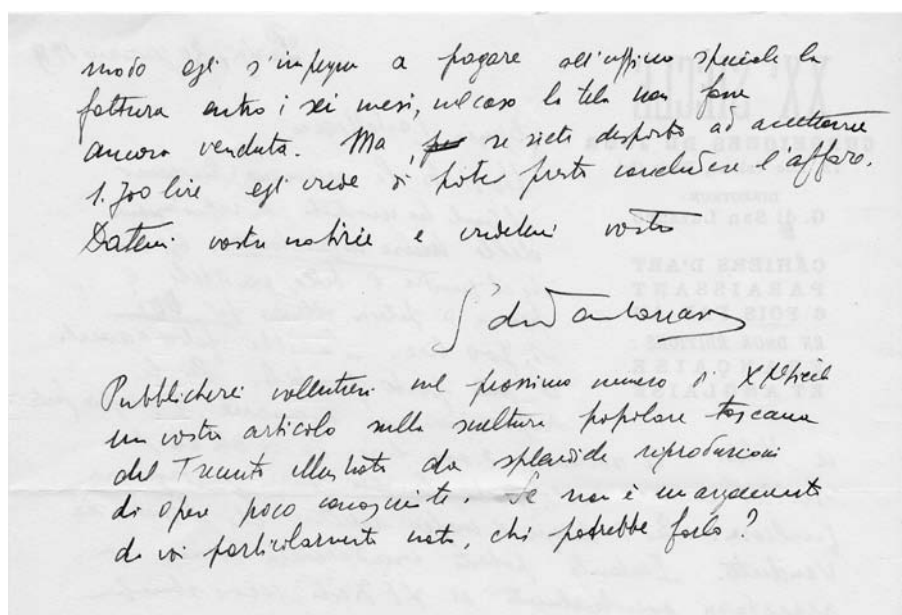 modo egli s'impegna a pagare all'ufficio speciale la
fattura entro i sei mesi, nel caso la tela non fosse
ancora venduta. Ma, se siete disposto ad accettarne
1.700 lire egli crede di poter presto concludere l'affare.
Datemi vostre notizie e credetemi vostro
G. di San Lazzaro
Pubblicherei volentieri nel prossimo numero di XXe Siècle
un vostro articolo sulla scultura popolare toscana
del Trecento illustrato da splendide riproduzioni
di opere poco conosciute. Se non è un argomento
da voi particolarmente noto, chi potrebbe farlo?
XXe SIÈCLE
G. di San Lazzaro
CAHIERS D'ART
PARAISSANT
6 FOIS
EN DEUX ÉDITIONS :
FRANÇAISE
ET ANGLAISE